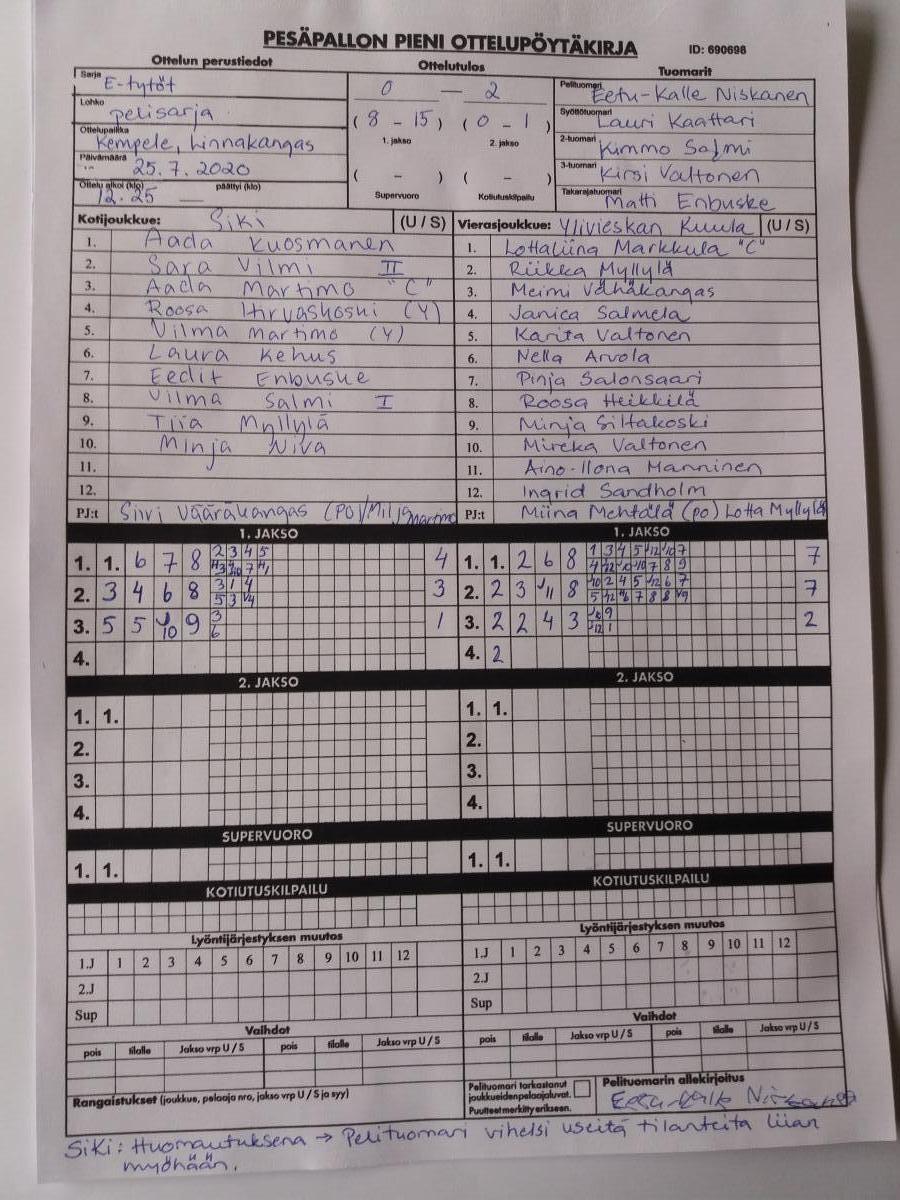 PESÄPALLON PIENI OTTELUPÖYTÄKIRJA ID: 690698
Ottelun perustiedot Ottelutulos Tuomarit
Sarja E-tytöt 0 — 2 Pelituomari Eetu-Kalle Niskanen
Lohko pelisarja (8 - 15) (0 - 1) Syöttötuomari Lauri Kaattari
Ottelupaikka Kempele, Linnakangas 1. jakso 2. jakso 2-tuomari Kimmo Salmi
Päivämäärä 25.7.2020 ( - ) ( - ) 3-tuomari Kirsi Valtonen
Ottelu alkoi (klo) 12.25 päättyi (klo) — Supervuoro Kotiutuskilpailu Takarajatuomari Matti Enbuske
Kotijoukkue: Siki (U / S) Vierasjoukkue: Ylivieskan Kuula (U / S)
1. Aada Kuosmanen 1. Lottaliina Markkula "C"
2. Sara Vilmi II 2. Riikka Myllylä
3. Aada Martimo "C" 3. Meimi Vähäkangas
4. Roosa Hirvaskoski (Y) 4. Janica Salmela
5. Vilma Martimo (Y) 5. Karita Valtonen
6. Laura Kehus 6. Nella Arvola
7. Eedit Enbuske 7. Pinja Salonsaari
8. Vilma Salmi I 8. Roosa Heikkilä
9. Tiia Myllylä 9. Minja Siltakoski
10. Minja Niva 10. Mireka Valtonen
11. 11. Aino-Ilona Manninen
12. 12. Ingrid Sandholm
PJ:t Siiri Vääräkangas (PO)/Milja Martimo PJ:t Miina Mehtälä (po) Lotta Myllylä
1. JAKSO 1. JAKSO
1. 1. 6 7 8 2 3 4 5 4 1. 1. 2 6 8 7
2. 3 4 6 8 3 1 4 3 2. 2 3 11 8 7
5 3 4
3. 5 5 10 9 3 1 3. 2 2 4 3 2
6
4. 4. 2
2. JAKSO 2. JAKSO
1. 1. 1. 1.
2. 2.
3. 3.
4. 4.
SUPERVUORO SUPERVUORO
1. 1. 1. 1.
KOTIUTUSKILPAILU KOTIUTUSKILPAILU
Lyöntijärjestyksen muutos Lyöntijärjestyksen muutos
1.J 1 2 3 4 5 6 7 8 9 10 11 12 1.J 1 2 3 4 5 6 7 8 9 10 11 12
2.J 2.J
Sup Sup
Vaihdot Vaihdot
pois tilalle Jakso vrp U / S pois tilalle Jakso vrp U / S pois tilalle Jakso vrp U / S pois tilalle Jakso vrp U / S
Rangaistukset (joukkue, pelaaja nro, jakso vrp U / S ja syy) Pelituomari tarkastanut joukkueiden pelaajaluvat. Puutteet merkitty erikseen. Pelituomarin allekirjoitus
Eetu-Kalle Niskanen
SiKi: Huomautuksena → Pelituomari vihelsi useita tilanteita liian
myöhään.